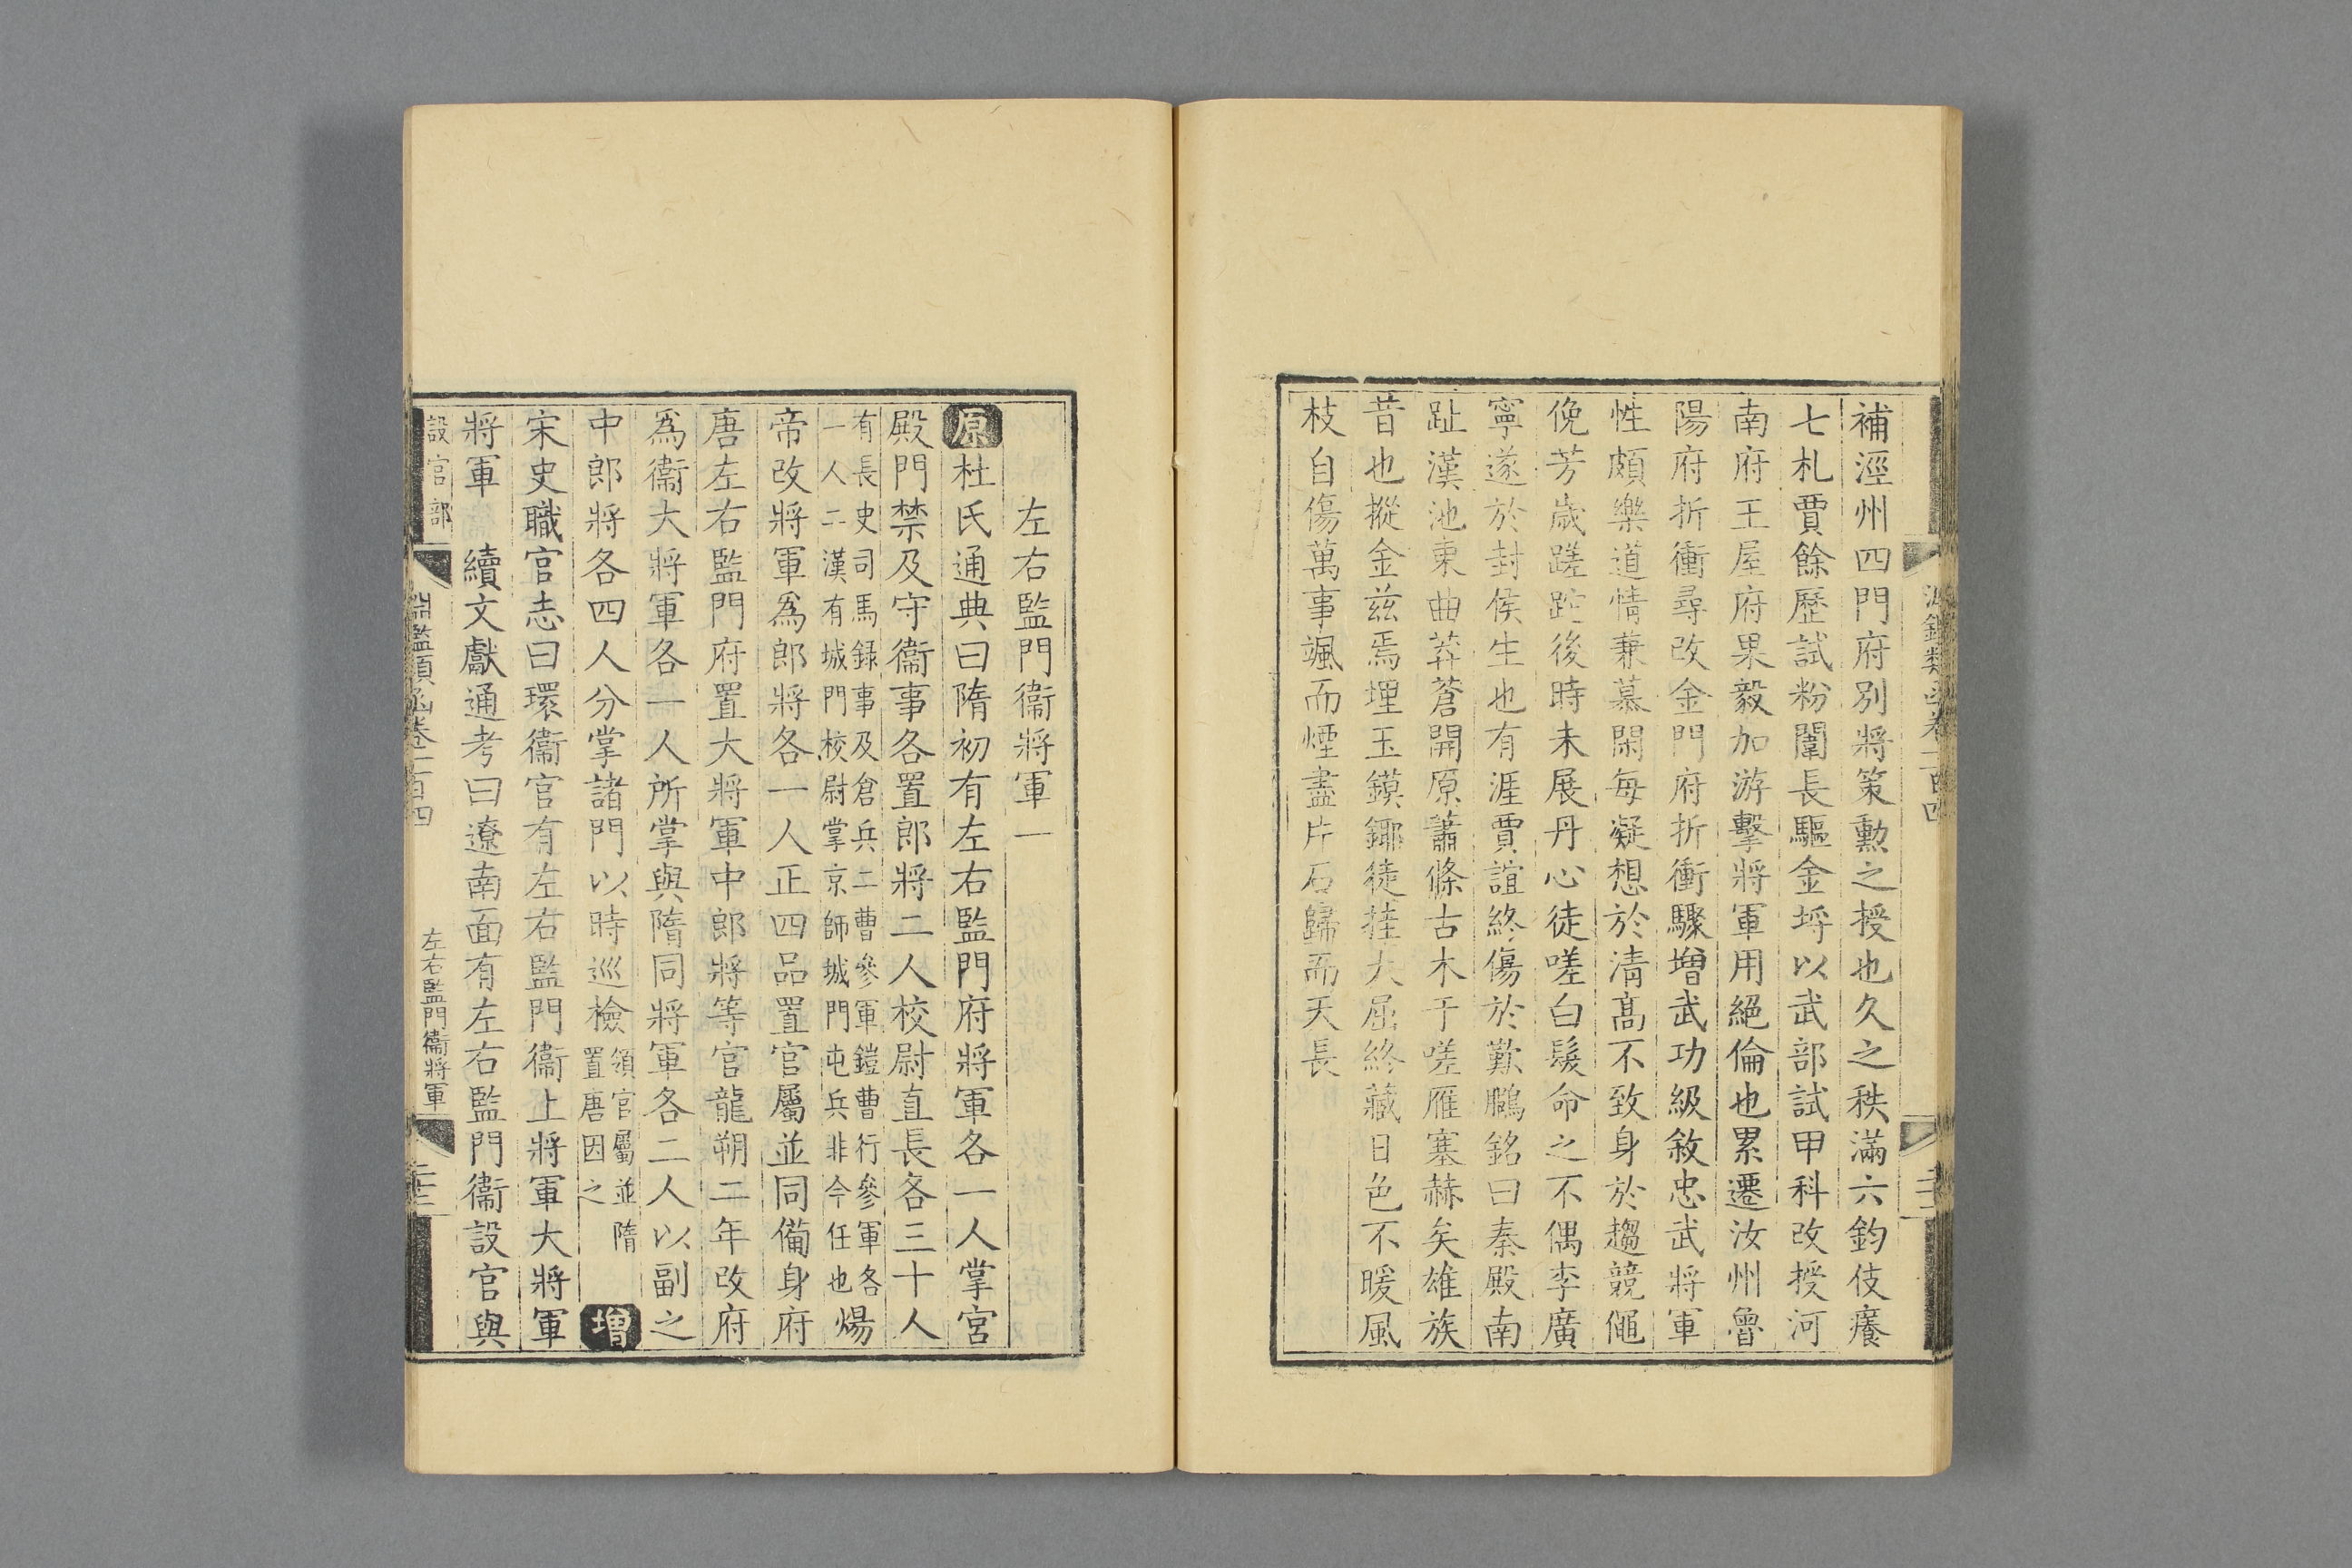 補涇州四門府別將策勳之授也久之秩滿六鈞伎癢
七札賈餘歷試粉闈長驅金埒以武部試甲科改授河
南府王屋府果毅加游擊將軍用絕倫也累遷汝州魯
陽府折衝尋改金門府折衝驟增武功級敘忠武將軍
性頗樂道情兼慕閑每凝想於清高不致身於趨競僶
俛芳歲蹉跎後時未展丹心徒嗟白髮命之不偶李廣
寧遂於封侯生也有涯賈誼終傷於歎鵩銘曰秦殿南
趾漢池東曲莽蒼開原蕭條古木于嗟雁塞赫矣雄族
昔也摐金茲焉埋玉鏌鋣徒挂大屈終藏日色不暖風
枝自傷萬事颯而煙盡片石歸而天長
左右監門衞將軍一
原杜氏通典曰隋初有左右監門府將軍各一人掌宮
殿門禁及守衞事各置郎將二人校尉直長各三十人
有長史司馬錄事及倉兵二曹參軍鎧曹行參軍各
一人二漢有城門校尉掌京師城門屯兵非今任也
煬
帝改將軍爲郎將各一人正四品置官屬並同備身府
唐左右監門府置大將軍中郎將等官龍朔二年改府
爲衞大將軍各一人所掌與隋同將軍各二人以副之
中郎將各四人分掌諸門以時巡檢
領官屬並隋
置唐因之
增
宋史職官志曰環衞官有左右監門衞上將軍大將軍
將軍 續文獻通考曰遼南面有左右監門衞設官與
設官部 淵鑑類函卷一百四 左右監門衞將軍